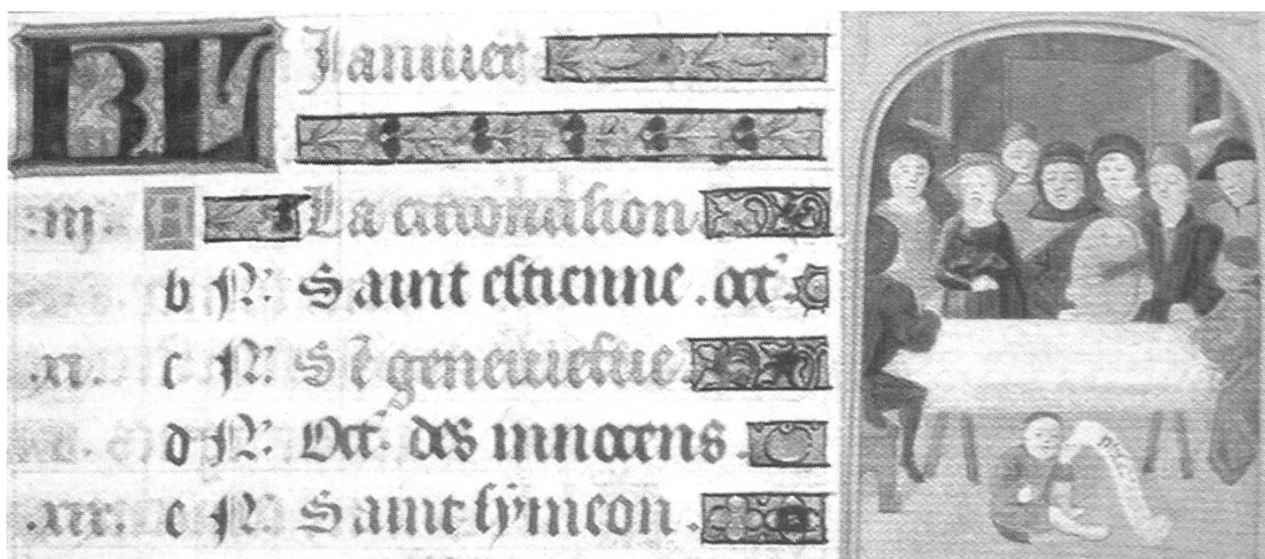 KL Januier
.iij. A La circoncision
b N. Saint estienne. oct.
.xi. c N. Ste geneuiefue
d N. Oct. des innocens.
.xix. e N. Saint symeon.